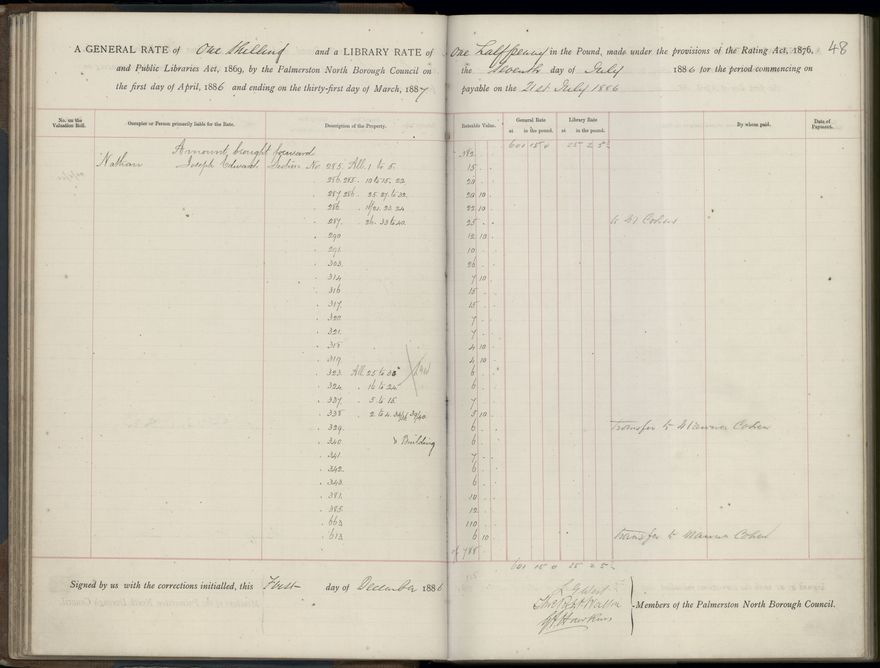 48
A GENERAL RATE of One Shilling and a LIBRARY RATE of One Halfpenny in the Pound, made under the provisions of the Rating Act, 1876,
and Public Libraries Act, 1869, by the Palmerston North Borough Council on the Seventh day of July 1886 for the period commencing on
the first day of April, 1886 and ending on the thirty-first day of March, 1887 payable on the 21st July 1886
No. on the Valuation Roll. Occupier or Person primarily liable for the Rate. Description of the Property. Rateable Value. General Rate at in the pound. Library Rate at in the pound. By whom paid. Date of Payment.
Amount brought forward 382 601 15 0 25 2 5
Nathan Joseph Edward Section No 285 All 1 to 5 15
286 285 10 to 15 22 20
287 286 25 27 to 32 20 10
286 23 24 22 10
287 26 33 to 40 25 Cohen
290 12 10
291 10
303 26
314 7 10
316 15
317 15
320 7
321 7
318 4 10
319 4 10
323 All 25 to 35 6
324 16 to 24 6
337 5 to 15 7
338 2 to 4 5 10
339 6 Transfer to Cohen
340 & Building 6
341 7
342 6
343 6
381 10
385 12
663 110
613 6 10 Transfer to Cohen
788
601 15 0 25 2 5
Signed by us with the corrections initialled, this First day of December 1886
Hawkins
Members of the Palmerston North Borough Council.